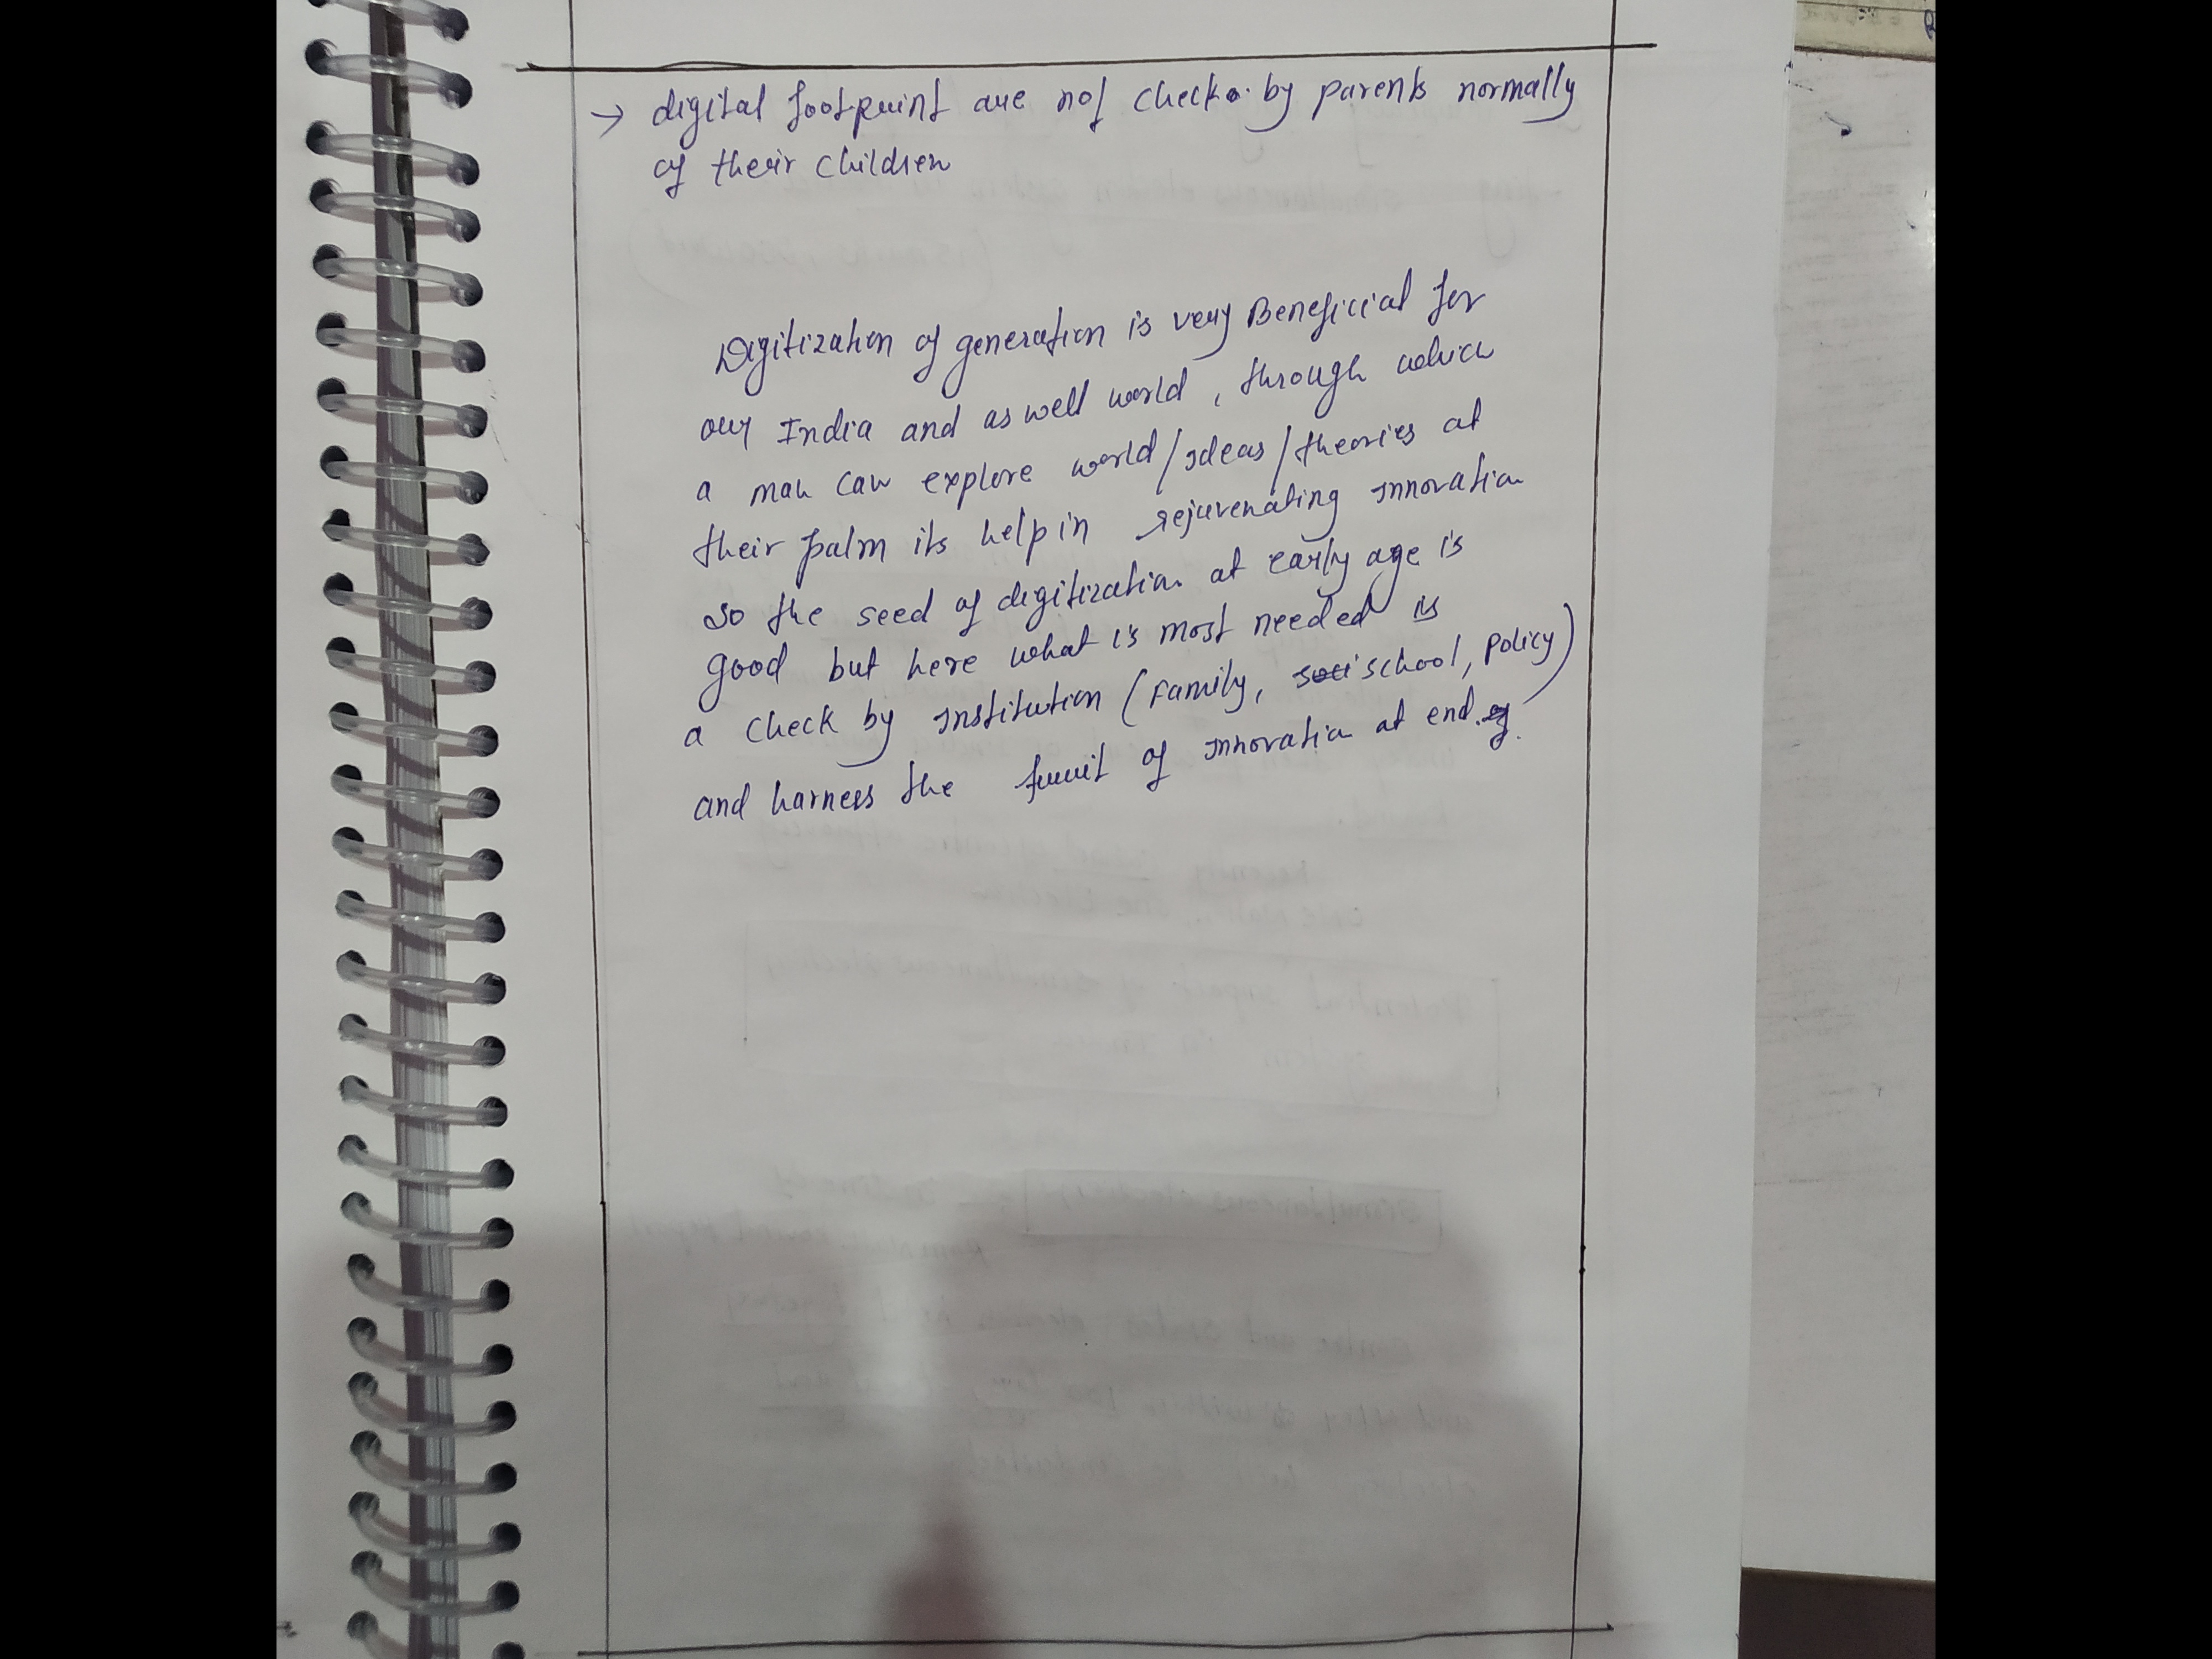 → digital footprint are not check by parents normally
of their children
Digitization of generation is very Beneficial for
our India and as well world, through which
a man can explore world/ideas/theories at
their palm its help in rejuvenating innovation
so the seed of digitization at early age is
good but here what is most needed is
a check by institution (family, school, policy)
and harness the fruit of innovation at end.